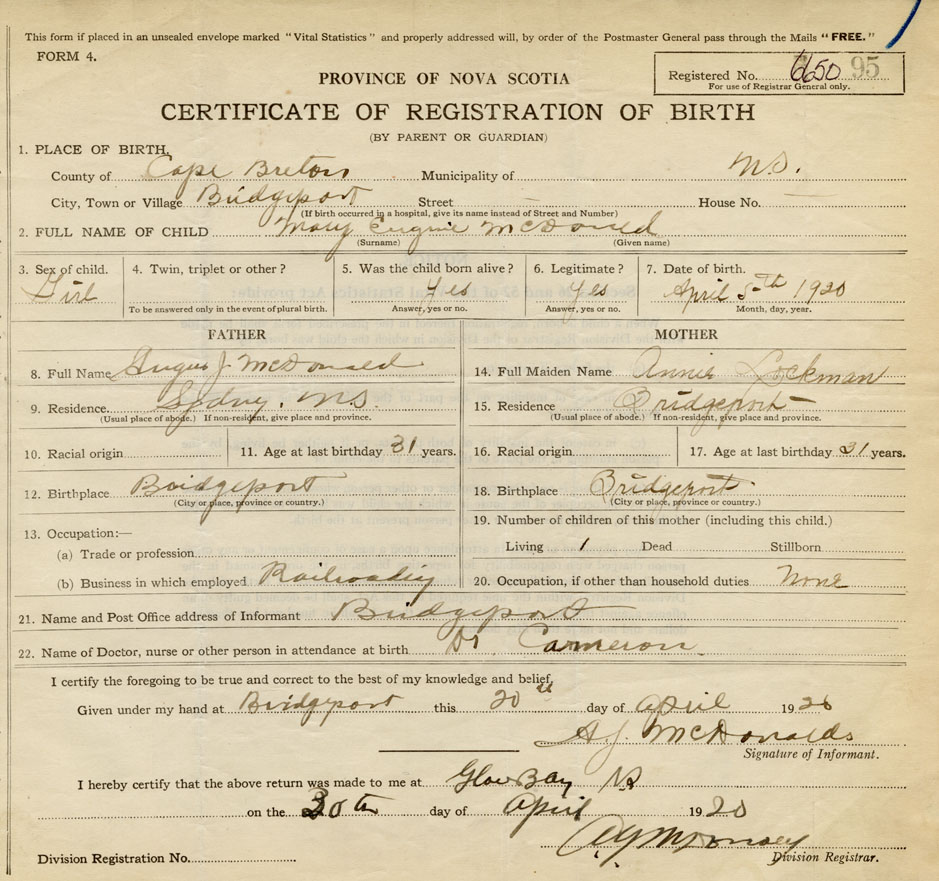 This form if placed in an unsealed envelope marked "Vital Statistics" and properly addressed will, by order of the Postmaster General pass through the Mails "FREE."
FORM 4.
Registered No. 6650 95
For use of Registrar General only.
PROVINCE OF NOVA SCOTIA
CERTIFICATE OF REGISTRATION OF BIRTH
(BY PARENT OR GUARDIAN)
1. PLACE OF BIRTH,
County of Cape Breton Municipality of N.S.
City, Town or Village Bridgeport Street — House No. —
(If birth occurred in a hospital, give its name instead of Street and Number)
2. FULL NAME OF CHILD Mary Eugnie McDonald
(Surname) (Given name)
3. Sex of child. 4. Twin, triplet or other? 5. Was the child born alive? 6. Legitimate? 7. Date of birth.
Girl Yes Yes April 5th 1920
To be answered only in the event of plural birth. Answer, yes or no. Answer, yes or no. Month, day, year.
FATHER
8. Full Name Angus J McDonald
9. Residence Sydney, N.S.
(Usual place of abode.) If non-resident, give place and province.
10. Racial origin 11. Age at last birthday 31 years.
12. Birthplace Bridgeport
(City or place, province or country.)
13. Occupation:—
(a) Trade or profession
(b) Business in which employed Railroading
MOTHER
14. Full Maiden Name Annie Lockman
15. Residence Bridgeport
(Usual place of abode.) If non-resident, give place and province.
16. Racial origin 17. Age at last birthday 31 years.
18. Birthplace Bridgeport
(City or place, province or country.)
19. Number of children of this mother (including this child.)
Living 1 Dead Stillborn
20. Occupation, if other than household duties None
21. Name and Post Office address of Informant Bridgeport
22. Name of Doctor, nurse or other person in attendance at birth Dr. Cameron
I certify the foregoing to be true and correct to the best of my knowledge and belief,
Given under my hand at Bridgeport this 20th day of April 1920
A. J. McDonald
Signature of Informant.
I hereby certify that the above return was made to me at Glace Bay NS
on the 30th day of April 1920
Division Registration No.
Division Registrar.